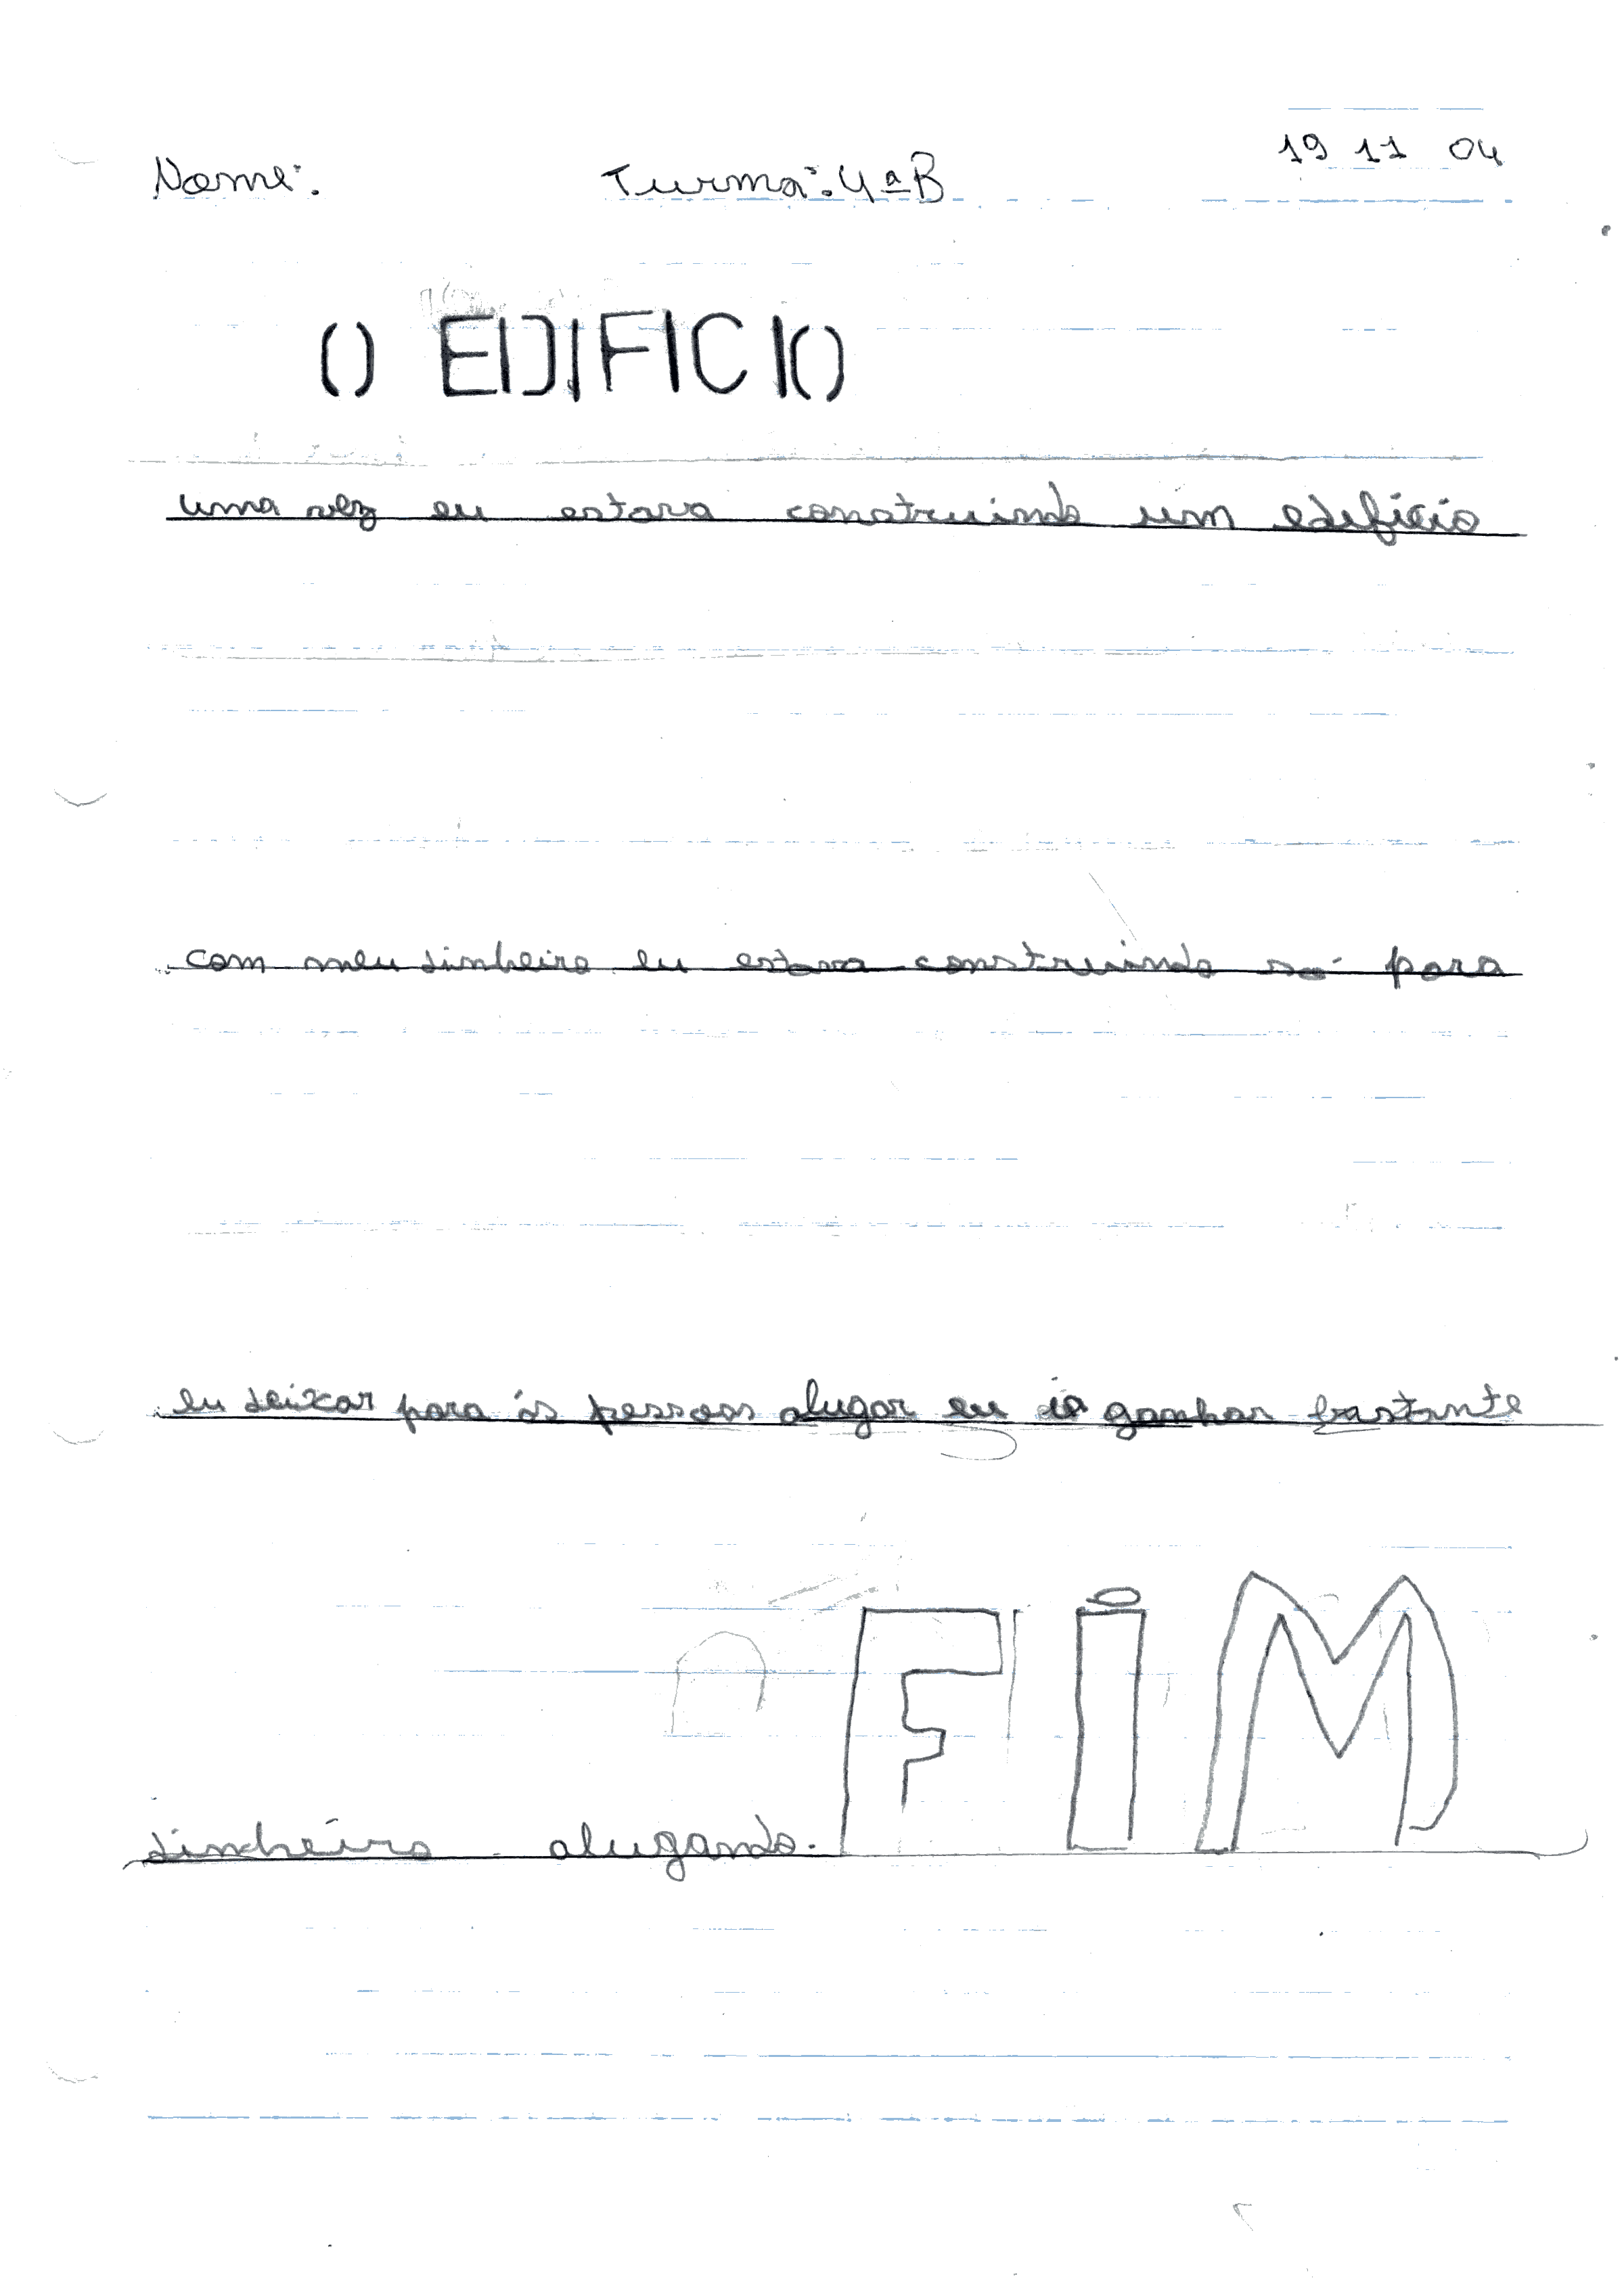 19 11 04
Nome: Turma: 4ª B
O EDIFICIO
uma vez eu estava construindo um edificio
com meu dinheiro eu estava construindo só para
eu deixar para ás pessoas alugar eu ia ganhar bastante
dinheiro alugando.
FIM